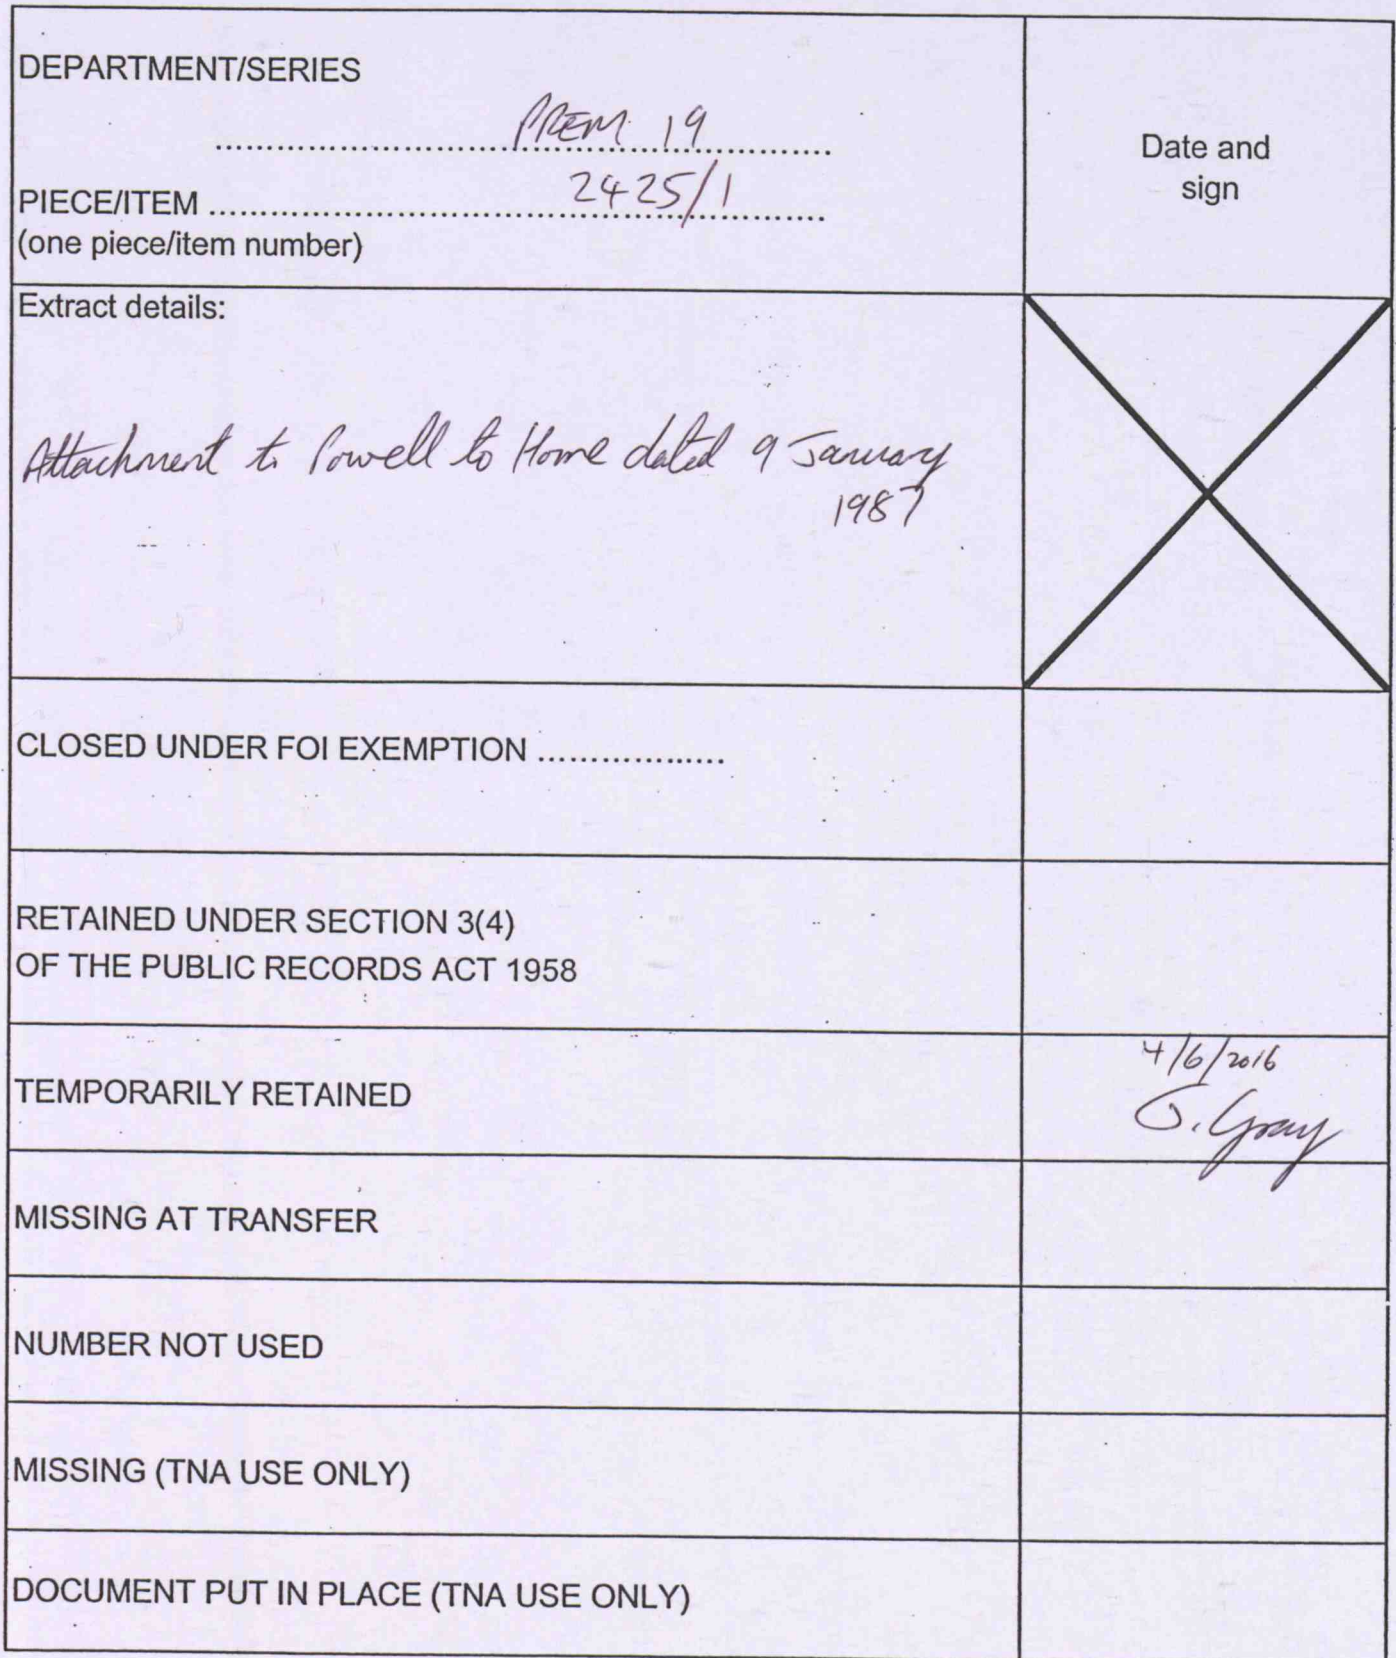 DEPARTMENT/SERIES
PREM 19
Date and
sign
PIECE/ITEM ........................................ 2425/1
(one piece/item number)
Extract details:
Attachment to Powell to Home dated 9 January
1987
CLOSED UNDER FOI EXEMPTION ..................
RETAINED UNDER SECTION 3(4)
OF THE PUBLIC RECORDS ACT 1958
TEMPORARILY RETAINED
4/6/2016
Gray
MISSING AT TRANSFER
NUMBER NOT USED
MISSING (TNA USE ONLY)
DOCUMENT PUT IN PLACE (TNA USE ONLY)